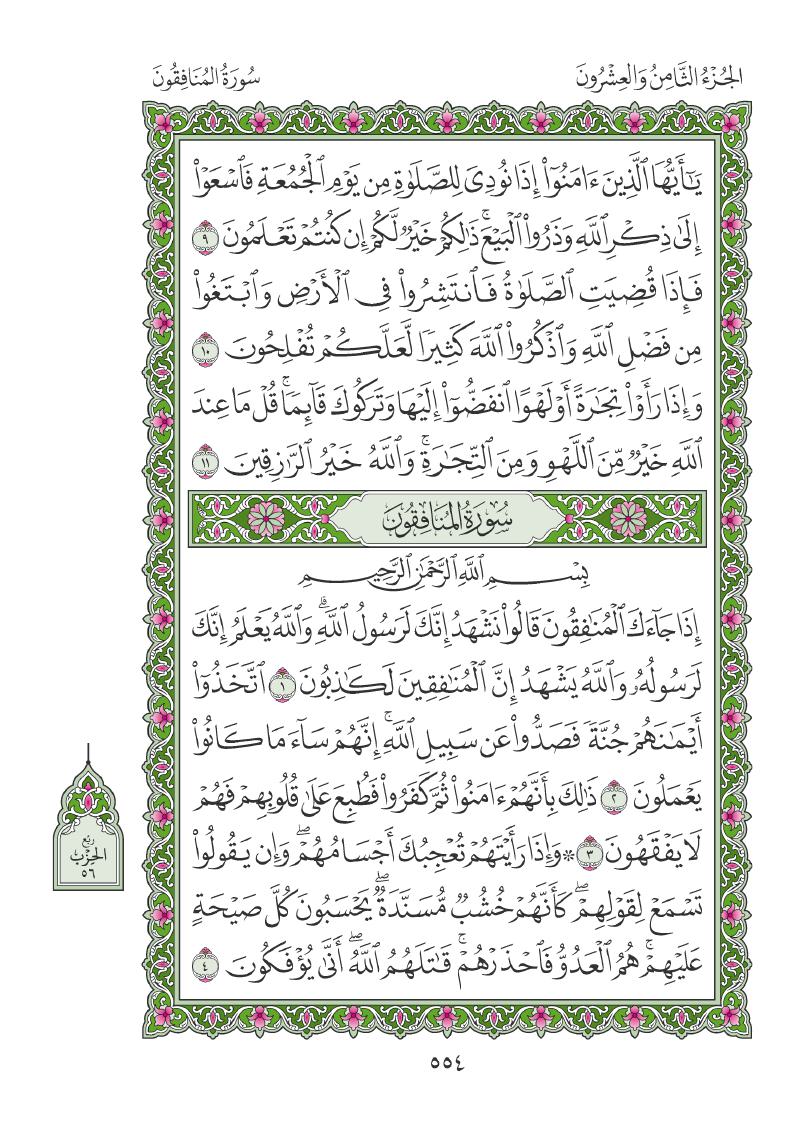 الجُزْءُ الثَّامِنُ وَالعِشْرُونَ
سُورَةُ المُنَافِقُونَ
يَٰٓأَيُّهَا ٱلَّذِينَ ءَامَنُوٓا۟ إِذَا نُودِىَ لِلصَّلَوٰةِ مِن يَوْمِ ٱلْجُمُعَةِ فَٱسْعَوْا۟
إِلَىٰ ذِكْرِ ٱللَّهِ وَذَرُوا۟ ٱلْبَيْعَ ۚ ذَٰلِكُمْ خَيْرٌ لَّكُمْ إِن كُنتُمْ تَعْلَمُونَ ٩
فَإِذَا قُضِيَتِ ٱلصَّلَوٰةُ فَٱنتَشِرُوا۟ فِى ٱلْأَرْضِ وَٱبْتَغُوا۟
مِن فَضْلِ ٱللَّهِ وَٱذْكُرُوا۟ ٱللَّهَ كَثِيرًا لَّعَلَّكُمْ تُفْلِحُونَ ١٠
وَإِذَا رَأَوْا۟ تِجَٰرَةً أَوْ لَهْوًا ٱنفَضُّوٓا۟ إِلَيْهَا وَتَرَكُوكَ قَآئِمًا ۚ قُلْ مَا عِندَ
ٱللَّهِ خَيْرٌ مِّنَ ٱللَّهْوِ وَمِنَ ٱلتِّجَٰرَةِ ۚ وَٱللَّهُ خَيْرُ ٱلرَّٰزِقِينَ ١١
سُورَةُ المُنَافِقُونَ
بِسْمِ ٱللَّهِ ٱلرَّحْمَٰنِ ٱلرَّحِيمِ
إِذَا جَآءَكَ ٱلْمُنَٰفِقُونَ قَالُوا۟ نَشْهَدُ إِنَّكَ لَرَسُولُ ٱللَّهِ ۗ وَٱللَّهُ يَعْلَمُ إِنَّكَ
لَرَسُولُهُۥ وَٱللَّهُ يَشْهَدُ إِنَّ ٱلْمُنَٰفِقِينَ لَكَٰذِبُونَ ١ ٱتَّخَذُوٓا۟
أَيْمَٰنَهُمْ جُنَّةً فَصَدُّوا۟ عَن سَبِيلِ ٱللَّهِ ۚ إِنَّهُمْ سَآءَ مَا كَانُوا۟
يَعْمَلُونَ ٢ ذَٰلِكَ بِأَنَّهُمْ ءَامَنُوا۟ ثُمَّ كَفَرُوا۟ فَطُبِعَ عَلَىٰ قُلُوبِهِمْ فَهُمْ
لَا يَفْقَهُونَ ٣ ۞ وَإِذَا رَأَيْتَهُمْ تُعْجِبُكَ أَجْسَامُهُمْ ۖ وَإِن يَقُولُوا۟
تَسْمَعْ لِقَوْلِهِمْ ۖ كَأَنَّهُمْ خُشُبٌ مُّسَنَّدَةٌ ۖ يَحْسَبُونَ كُلَّ صَيْحَةٍ
عَلَيْهِمْ ۚ هُمُ ٱلْعَدُوُّ فَٱحْذَرْهُمْ ۚ قَٰتَلَهُمُ ٱللَّهُ ۖ أَنَّىٰ يُؤْفَكُونَ ٤
رُبْعُ
الحِزْبِ
٥٦
٥٥٤